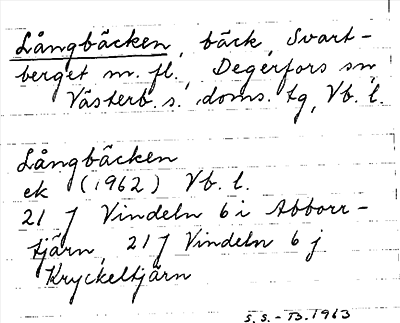 Långbäcken, bäck, Svart-
berget m. fl., Degerfors sn,
Västerb. s. doms. tg, Vb. l.
Långbäcken
ek (1962) Vb. l.
21 J Vindeln 6 i Abborr-
tjärn, 21 J Vindeln 6 j
Kryckeltjärn
S.S.-B.1963